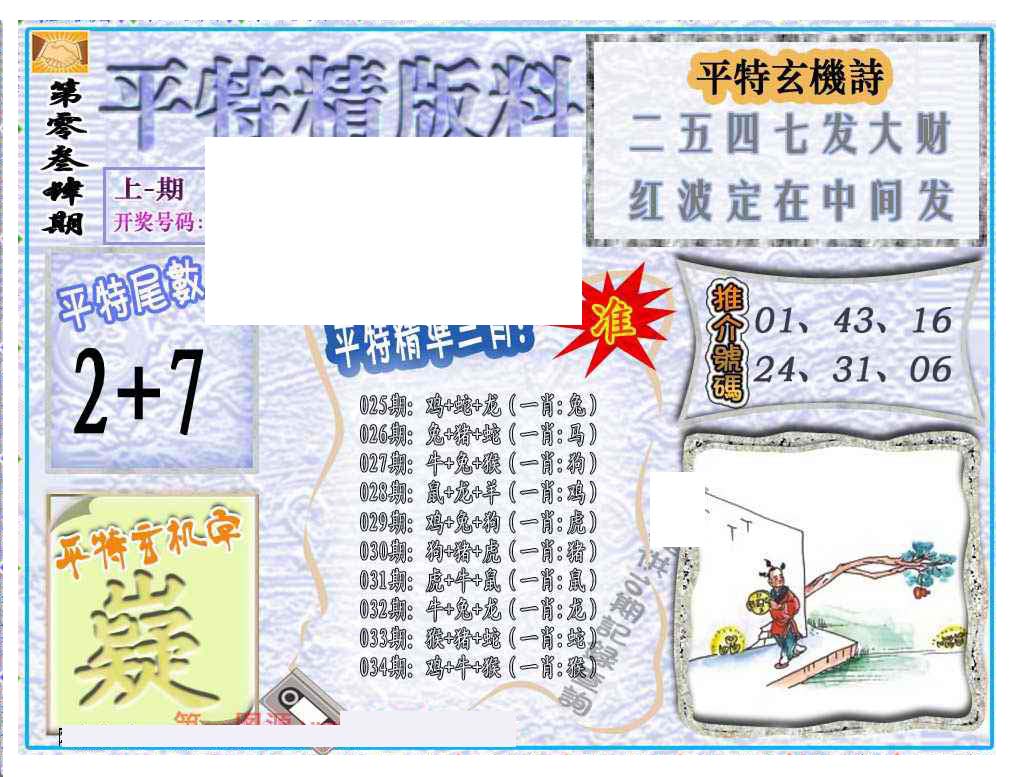 第零叁肆期
平特精版料
上-期
开奖号码:
平特玄機詩
二五四七发大财
红波定在中间发
平特尾數
2+7
平特精准三肖:
准
推介號碼
01、43、16
24、31、06
025期: 鸡+蛇+龙(一肖:兔)
026期: 兔+猪+蛇(一肖:马)
027期: 牛+兔+猴(一肖:狗)
028期: 鼠+龙+羊(一肖:鸡)
029期: 鸡+兔+狗(一肖:虎)
030期: 狗+猪+虎(一肖:猪)
031期: 虎+牛+鼠(一肖:鼠)
032期: 牛+兔+龙(一肖:龙)
033期: 猴+猪+蛇(一肖:蛇)
034期: 鸡+牛+猴(一肖:猴)
供3期記録查詢
平特玄机字
嶷